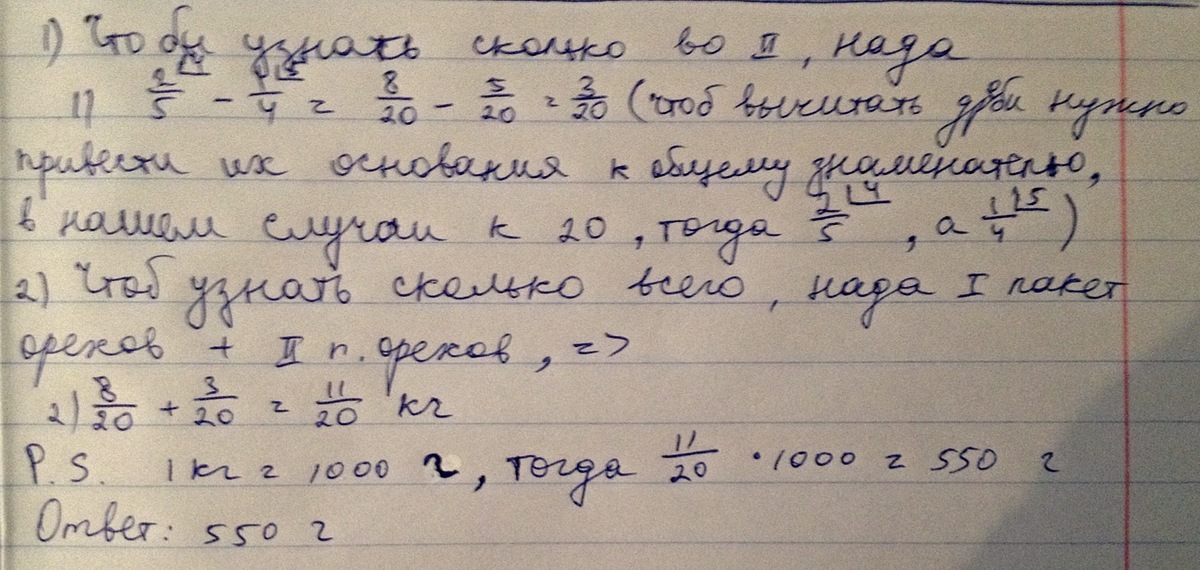 1) Что бы узнать сколко во II, нада
1) 2/5 ⌊4 - 1/4 ⌊5 = 8/20 - 5/20 = 3/20 (чтоб вычитать дроби нужно
привести их основания к общему знаменателю,
в нашем случаи к 20, тогда 2/5 ⌊4, а 1/4 ⌊5)
2) Чтоб узнать сколько всего, нада I пакет
орехов + II п. орехов, =>
2) 8/20 + 3/20 = 11/20 кг
P.S. 1 кг = 1000 г, тогда 11/20 · 1000 = 550 г
Ответ: 550 г